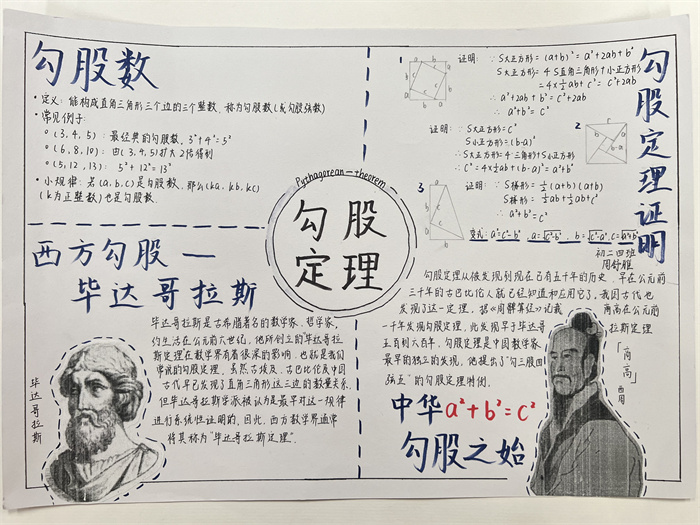 勾股数
·定义:能构成直角三角形三个边的三个整数,称为勾股数(或勾股弦数)
·常见例子:
○(3,4,5):最经典的勾股数,3²+4²=5²
○(6,8,10):由(3,4,5)扩大2倍得到
○(5,12,13):5²+12²=13²
·小规律:若(a,b,c)是勾股数,那么(ka,kb,kc)
(k为正整数)也是勾股数.
西方勾股—
毕达哥拉斯
毕达哥拉斯是古希腊著名的数学家、哲学家,
约生活在公元前六世纪,他所创立的毕达哥拉
斯定理在数学界有着很深的影响,也就是我们
常说的勾股定理,虽然古埃及、古巴比伦及中国
古代早已发现了直角三角形这三边的数量关系,
但毕达哥拉斯学派被认为是最早对这一规律
进行系统性证明的,因此,西方数学界通常
将其称为"毕达哥拉斯定理".
毕达哥拉斯
Pythagorean—theorem
勾股
定理
勾股定理证明
证明:∵S大正方形=(a+b)²=a²+2ab+b²
S大正方形=4S直角三角形+小正方形
=4×½ab+c²=c²+2ab
∴a²+2ab+b²=c²+2ab
∴a²+b²=c²
2
证明:∵S大正方形=c²
S小正方形=(b-a)²
∴S大正方形=4S三角形+S小正方形
∴c²=4×½ab+(b-a)²=a²+b²
3
证明:∵S梯形=½(a+b)(a+b)
S梯形=½ab+½ab+½c²
∴a²+b²=c²
变式:a²=c²-b²,a=√c²-b²,b=√c²-a²,c=√a²+b²
初二四班
周舒雅
勾股定理从被发现到现在已有五千年的历史,早在公元前
三千年的古巴比伦人就已经知道和应用它了,我国古代也
发现了这一定理,据《周髀算经》记载 商高在公元前
一千年发现勾股定理,此发现早于毕达哥 拉斯定理
五百到六百年,勾股定理是中国数学家
最早的独立的发现,他提出了"勾三股四
弦五"的勾股定理特例.
「商高」
西周
中华a²+b²=c²
勾股之始